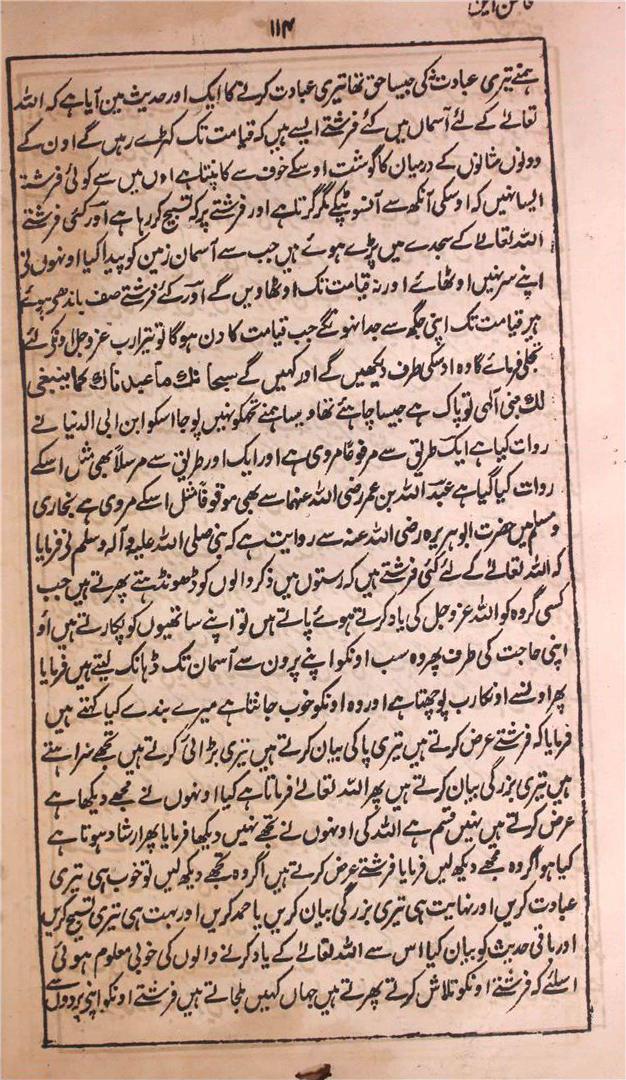 ۱۱۴
ہمنے تیری عبادت نہ کی جیسا حق تھا تیری عبادت کرنے کا ایک اور حدیث مین آیا ہے کہ اللہ
تعالےٰ کے لئے آسمان میں کئے فرشتے ایسے ہیں کہ قیامت تک کہڑے رہیں گے اون کے
دونوں شانوں کے درمیان کا گوشت اوسکے خوف سے کانپتا ہے اون میں سے کوئی فرشتہ
ایسا نہیں کہ اوسکی آنکھ سے آنسو ٹپکے مگر گرتا ہے اور فرشتے پر کہ تسبیح کر رہا ہے اور کئی فرشتے
اللہ تعالےٰ کے سجدے میں پڑے ہوئے ہیں جب سے آسمان زمین کو پیدا کیا اونہوں نی
اپنے سر نہیں اوٹھائے اور نہ قیامت تک اوٹھاویں گے اور کے فرشتے صف باندھے ہوئے
ہیں قیامت تک اپنی جگہ سے جدا نہونگے جب قیامت کا دن ہوگا تو تیرا رب عزوجل اونکے لئے
تجلی فرمائے گا وہ اوسکی طرف دیکھیں گے اور کہیں گے سبحانك ماعبدناك كما ينبغى
لك یعنی آلہی تو پاک ہے جیسا چاہئے تھا ویسا ہمنے تجھکو نہیں پوجا اسکو ابن ابی الدنیا نے
روات کیا ہے ایک طریق سے مرفوعًا مروی ہے اور ایک اور طریق سے مرسلًا بھی مثل اسکے
روات کیا گیا ہے عبد اللہ بن عمر رضی اللہ عنہما سے بھی موقوفًا مثل اسکے مروی ہے بخاری
و مسلم میں حضرت ابو ہریرہ رضی اللہ عنہ سے روایت ہے کہ نبی صلی اللہ علیہ وآلہ وسلم نی فرمایا
کہ اللہ تعالےٰ کے لئے کئی فرشتے ہیں کہ رستوں میں ذکر والوں کو ڈھونڈہتے پھرتے ہیں جب
کسی گروہ کو اللہ عزوجل کی یاد کرتے ہوئے پاتے ہیں تو اپنے ساتھیوں کو پکارتے ہیں آؤ
اپنی حاجت کی طرف پھر وہ سب اونکو اپنے پرون سے آسمان تک ڈہانک لیتے ہیں فرمایا
پھر اونسے اونکا رب پوچھتا ہے اور وہ اونکو خوب جانتا ہے میرے بندے کیا کہتے ہیں
فرمایا کہ فرشتے عرض کرتے ہیں تیری پاکی بیان کرتے ہیں تیری بڑائی کرتے ہیں تجھے سراہتے
ہیں تیری بزرگی بیان کرتے ہیں پھر اللہ تعالےٰ فرماتا ہے کیا اونہوں نے مجھے دیکھا ہے
عرض کرتے ہیں نہیں قسم ہے اللہ کی اونہوں نے تجھے نہیں دیکھا فرمایا پھر ارشاد ہوتا ہے
کیا ہو اگر وہ مجھے دیکھ لیں فرمایا فرشتے عرض کرتے ہیں اگر وہ تجھے دیکھ لیں تو خوب ہی تیری
عبادت کریں اور نہایت ہی تیری بزرگی بیان کریں یا حمد کریں اور بہت ہی تیری تسبیح کریں
اور باقی حدیث کو بیان کیا اس سے اللہ تعالےٰ کے یاد کرنے والوں کی خوبی معلوم ہوئی
اسلئے کہ فرشتے اونکو تلاش کرتے پھرتے ہیں جہاں کہیں ملجاتے ہیں فرشتے اونکو اپنی پردوں سے